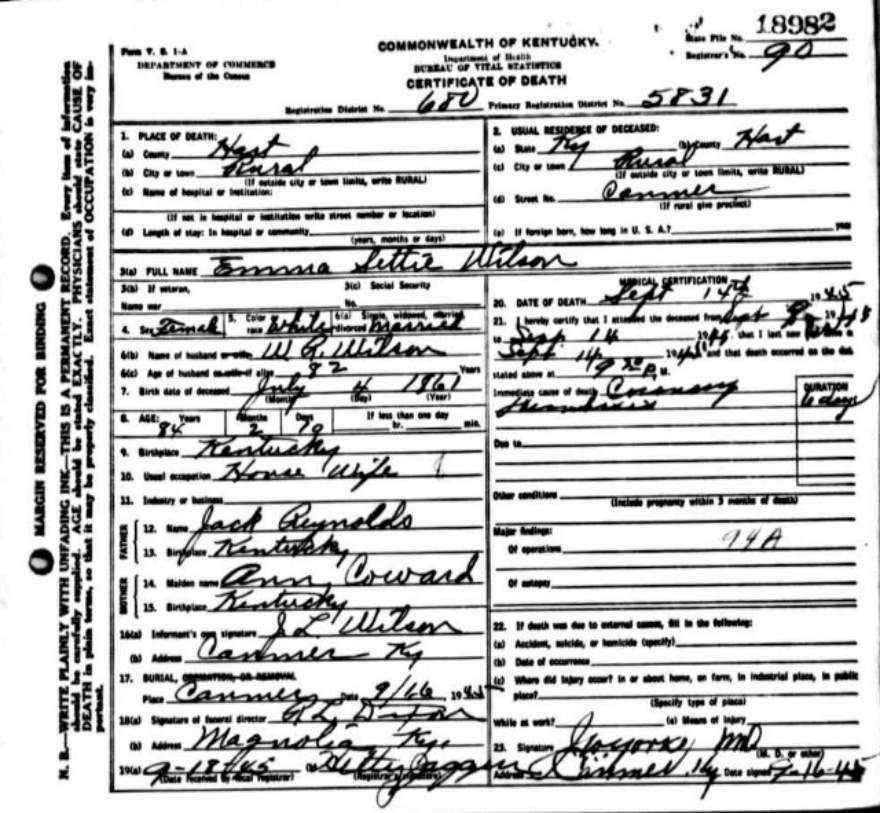 18982
Form V. S. 1-A
DEPARTMENT OF COMMERCE
Bureau of the Census
COMMONWEALTH OF KENTUCKY.
Department of Health
BUREAU OF VITAL STATISTICS
CERTIFICATE OF DEATH
State File No.
Registrar's No. 90
Registration District No. 680 Primary Registration District No. 5831
MARGIN RESERVED FOR BINDING
N. B.—WRITE PLAINLY WITH UNFADING INK—THIS IS A PERMANENT RECORD. Every item of information
should be carefully supplied. AGE should be stated EXACTLY. PHYSICIANS should state CAUSE OF
DEATH in plain terms, so that it may be properly classified. Exact statement of OCCUPATION is very im-
portant.
1. PLACE OF DEATH:
(a) County Hart
(b) City or town Rural
(If outside city or town limits, write RURAL)
(c) Name of hospital or institution:
(If not in hospital or institution write street number or location)
(d) Length of stay: In hospital or community
(years, months or days)
2. USUAL RESIDENCE OF DECEASED:
(a) State Ky (b) County Hart
(c) City or town Rural
(If outside city or town limits, write RURAL)
(d) Street No. Canmer
(If rural give precinct)
(e) If foreign born, how long in U. S. A.? years
3(a) FULL NAME Emma Settie Wilson
3(b) If veteran,
Name war
3(c) Social Security
No.
4. Sex Female 5. Color race White 6(a) Single, widowed, married, divorced Married
6(b) Name of husband or wife W R Wilson
6(c) Age of husband or wife if alive 82 Years
7. Birth date of deceased July 4 1861
(Month) (Day) (Year)
8. AGE: Years 84 Months 2 Days 10 If less than one day hr. min.
9. Birthplace Kentucky
10. Usual occupation House Wife
11. Industry or business
FATHER
12. Name Jack Reynolds
13. Birthplace Kentucky
MOTHER
14. Maiden name Ann Coward
15. Birthplace Kentucky
16(a) Informant's own signature J L Wilson
(b) Address Canmer Ky
17. BURIAL, CREMATION, OR REMOVAL
Place Canmer Date 9/16 1945
18(a) Signature of funeral director R L Dixon
(b) Address Magnolia Ky.
19(a) 9-18-45 (b)
(Date received by local registrar) (Registrar's signature)
MEDICAL CERTIFICATION
20. DATE OF DEATH Sept 14th 1945
21. I hereby certify that I attended the deceased from Sept 8 1945
to Sept 14 1945, that I last saw
Sept. 14 1945 and that death occurred on the date
stated above at 9 30 P. M.
Immediate cause of death Coronary
DURATION
6 days
Due to
Other conditions
(Include pregnancy within 3 months of death)
Major findings:
Of operations
94A
Of autopsy
22. If death was due to external causes, fill in the following:
(a) Accident, suicide, or homicide (specify)
(b) Date of occurrence
(c) Where did injury occur? in or about home, on farm, in industrial place, in public
place?
(Specify type of place)
While at work? (e) Means of injury
23. Signature MD
(M. D. or other)
Address Canmer, Ky Date signed 9-16-45